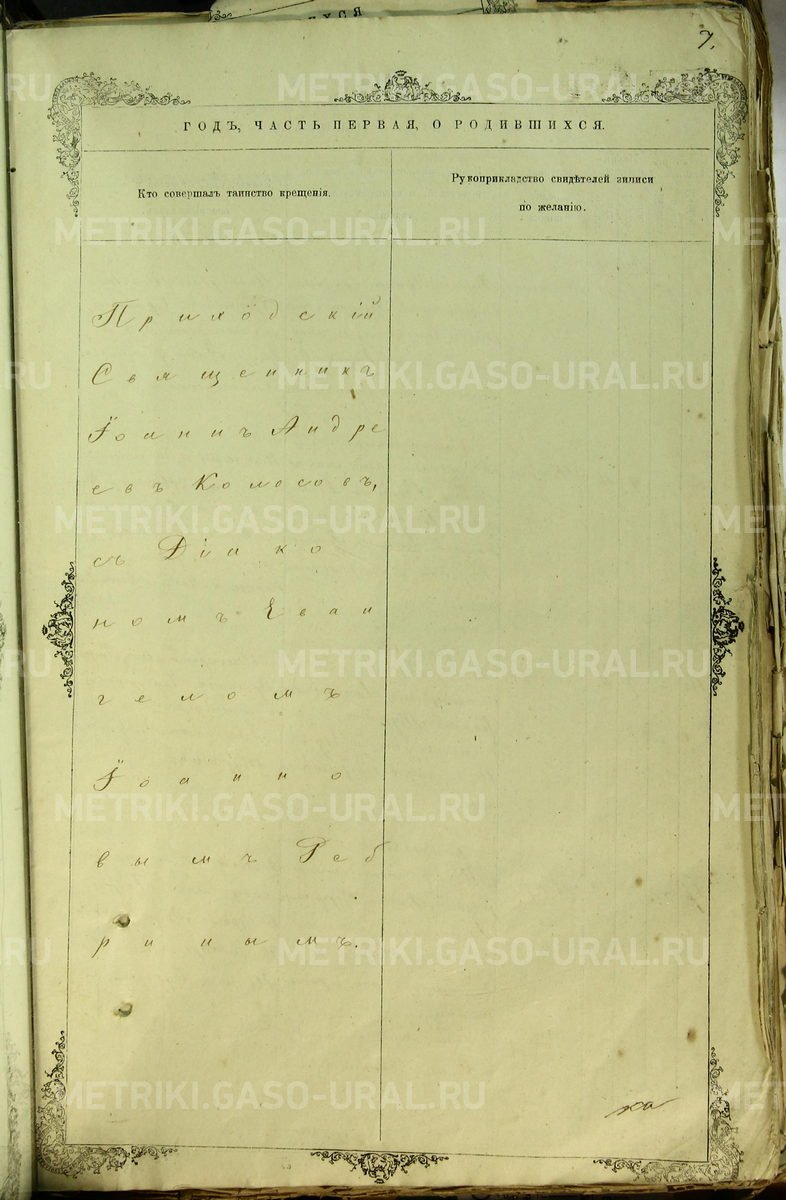 7.
ГОДЪ, ЧАСТЬ ПЕРВАЯ, О РОДИВШИХСЯ.
Кто совершалъ таинство крещенія.
Рукоприкладство свидѣтелей записи
по желанію.
Приходскій
Священникъ
Іоаннъ Андре
евъ Колосовъ,
съ Діако
номъ Еван
геломъ
Іоанно
вымъ Реб
ринымъ.
METRIKI.GASO-URAL.RU